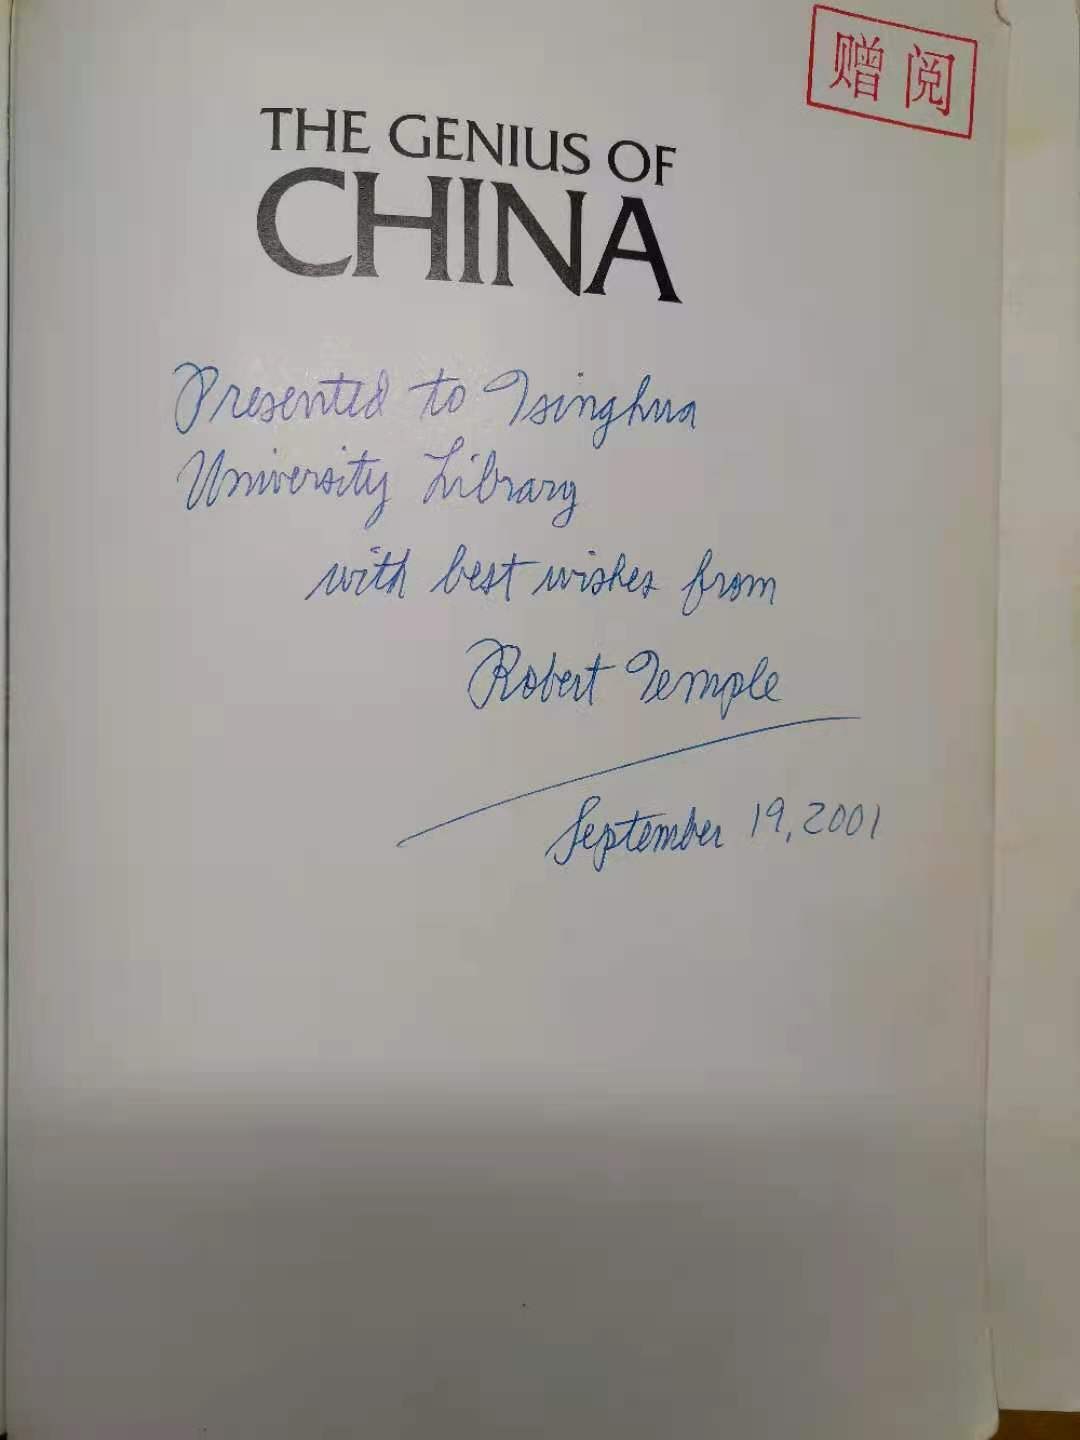 赠阅
THE GENIUS OF
CHINA
Presented to Tsinghua
University Library
with best wishes from
Robert Temple
September 19, 2001